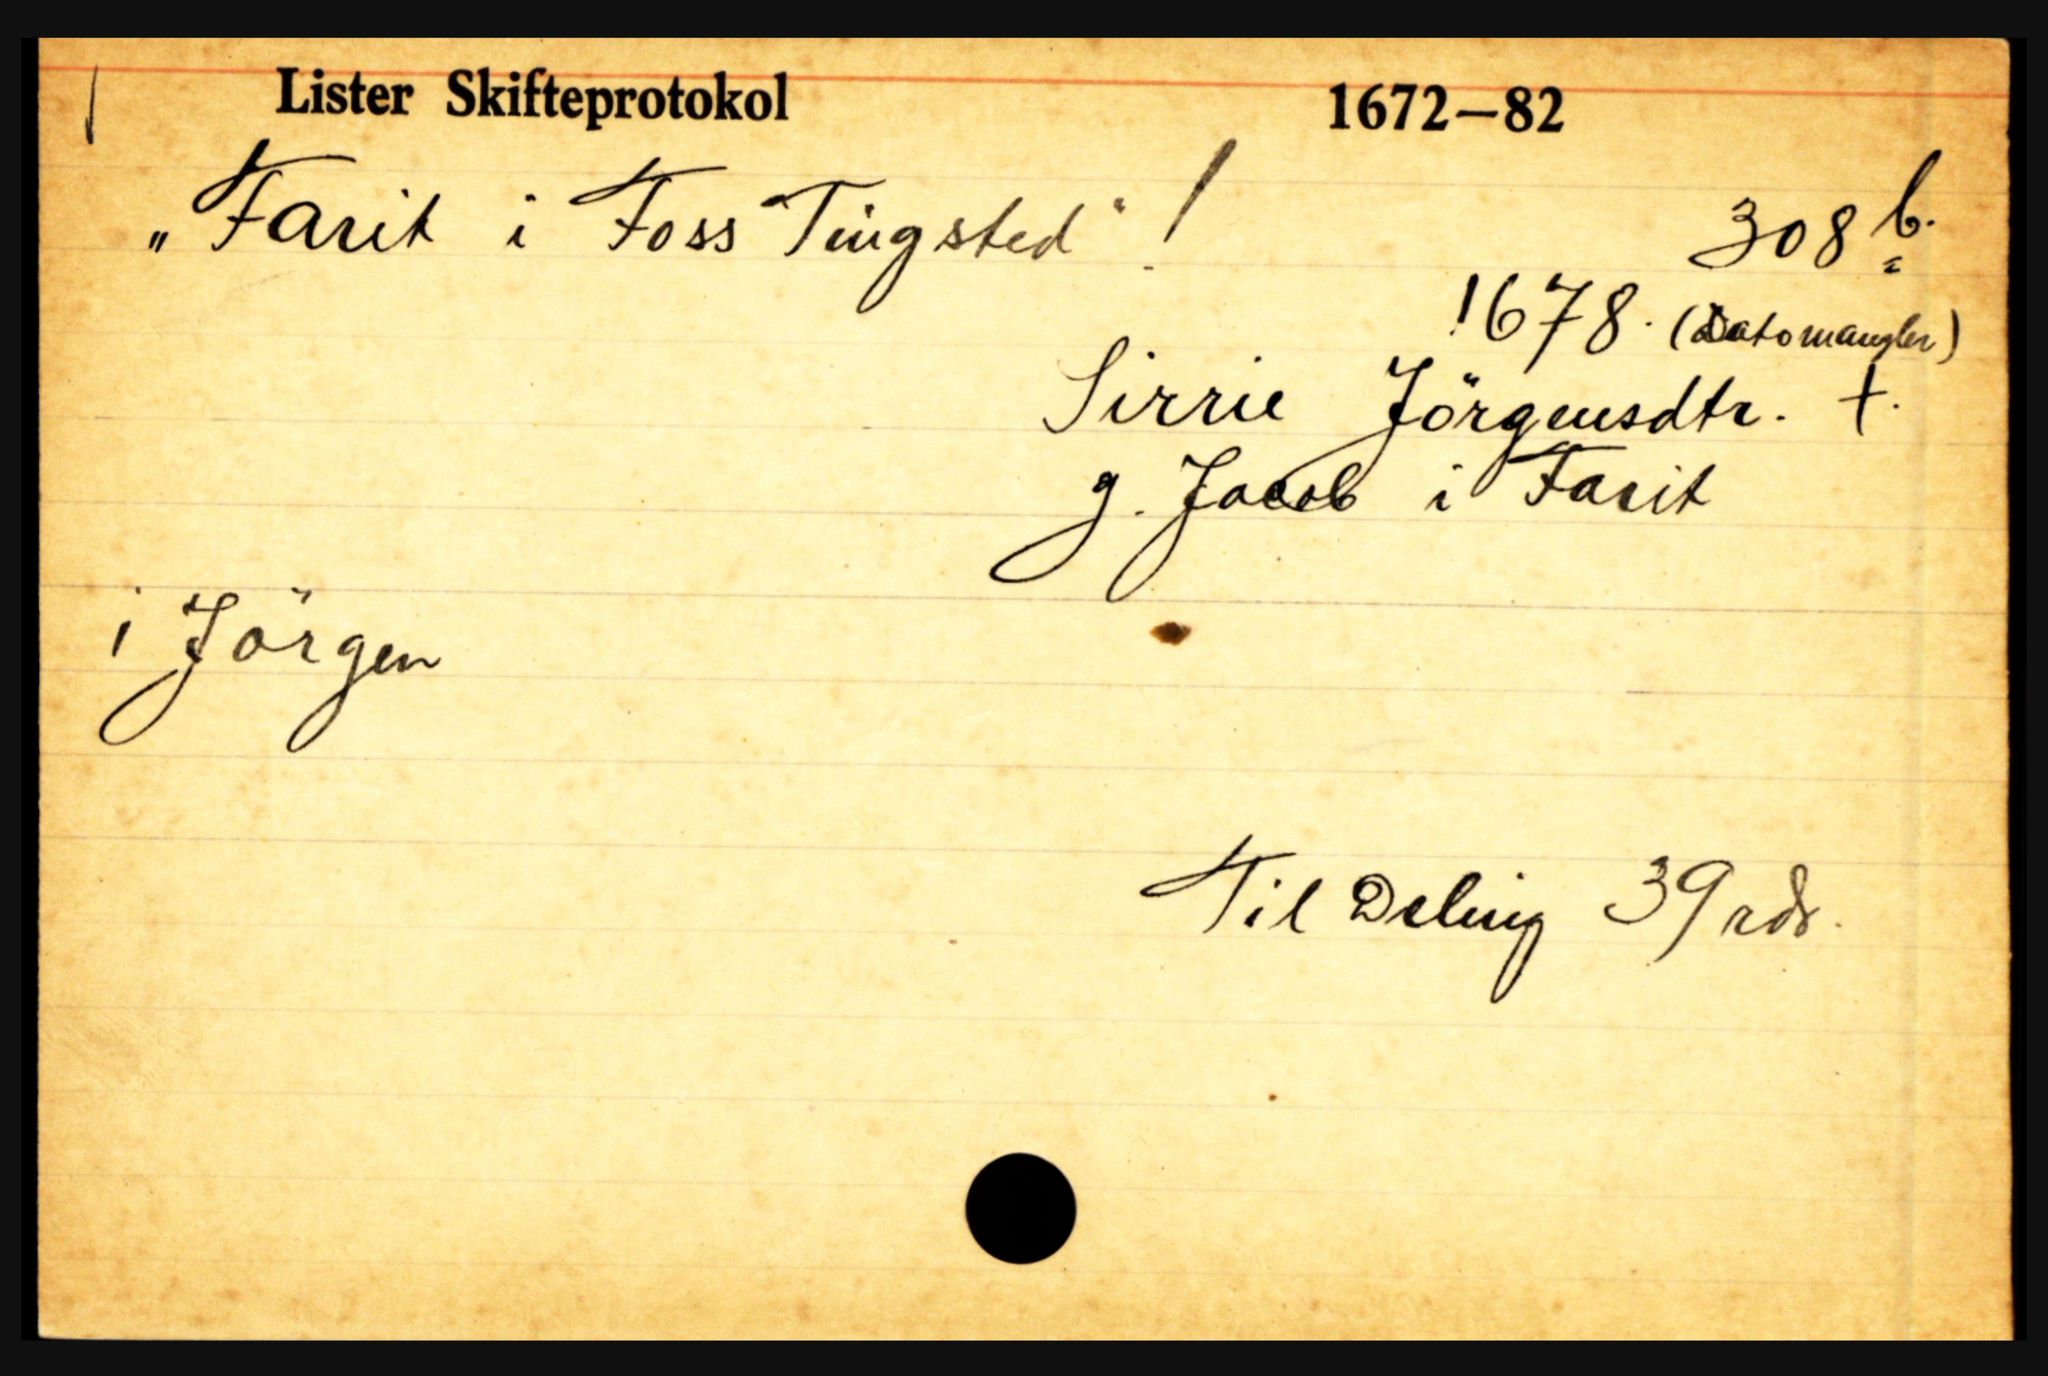 Lister Skifteprotokol 1672–82
„Farit i Foss Tingsted" !
308 b.
1678. (Dato mangler)
Sirrie Jörgensdtr. †.
g. Jacob i Farit
i Jörgen
Til Deling 39 rdr.